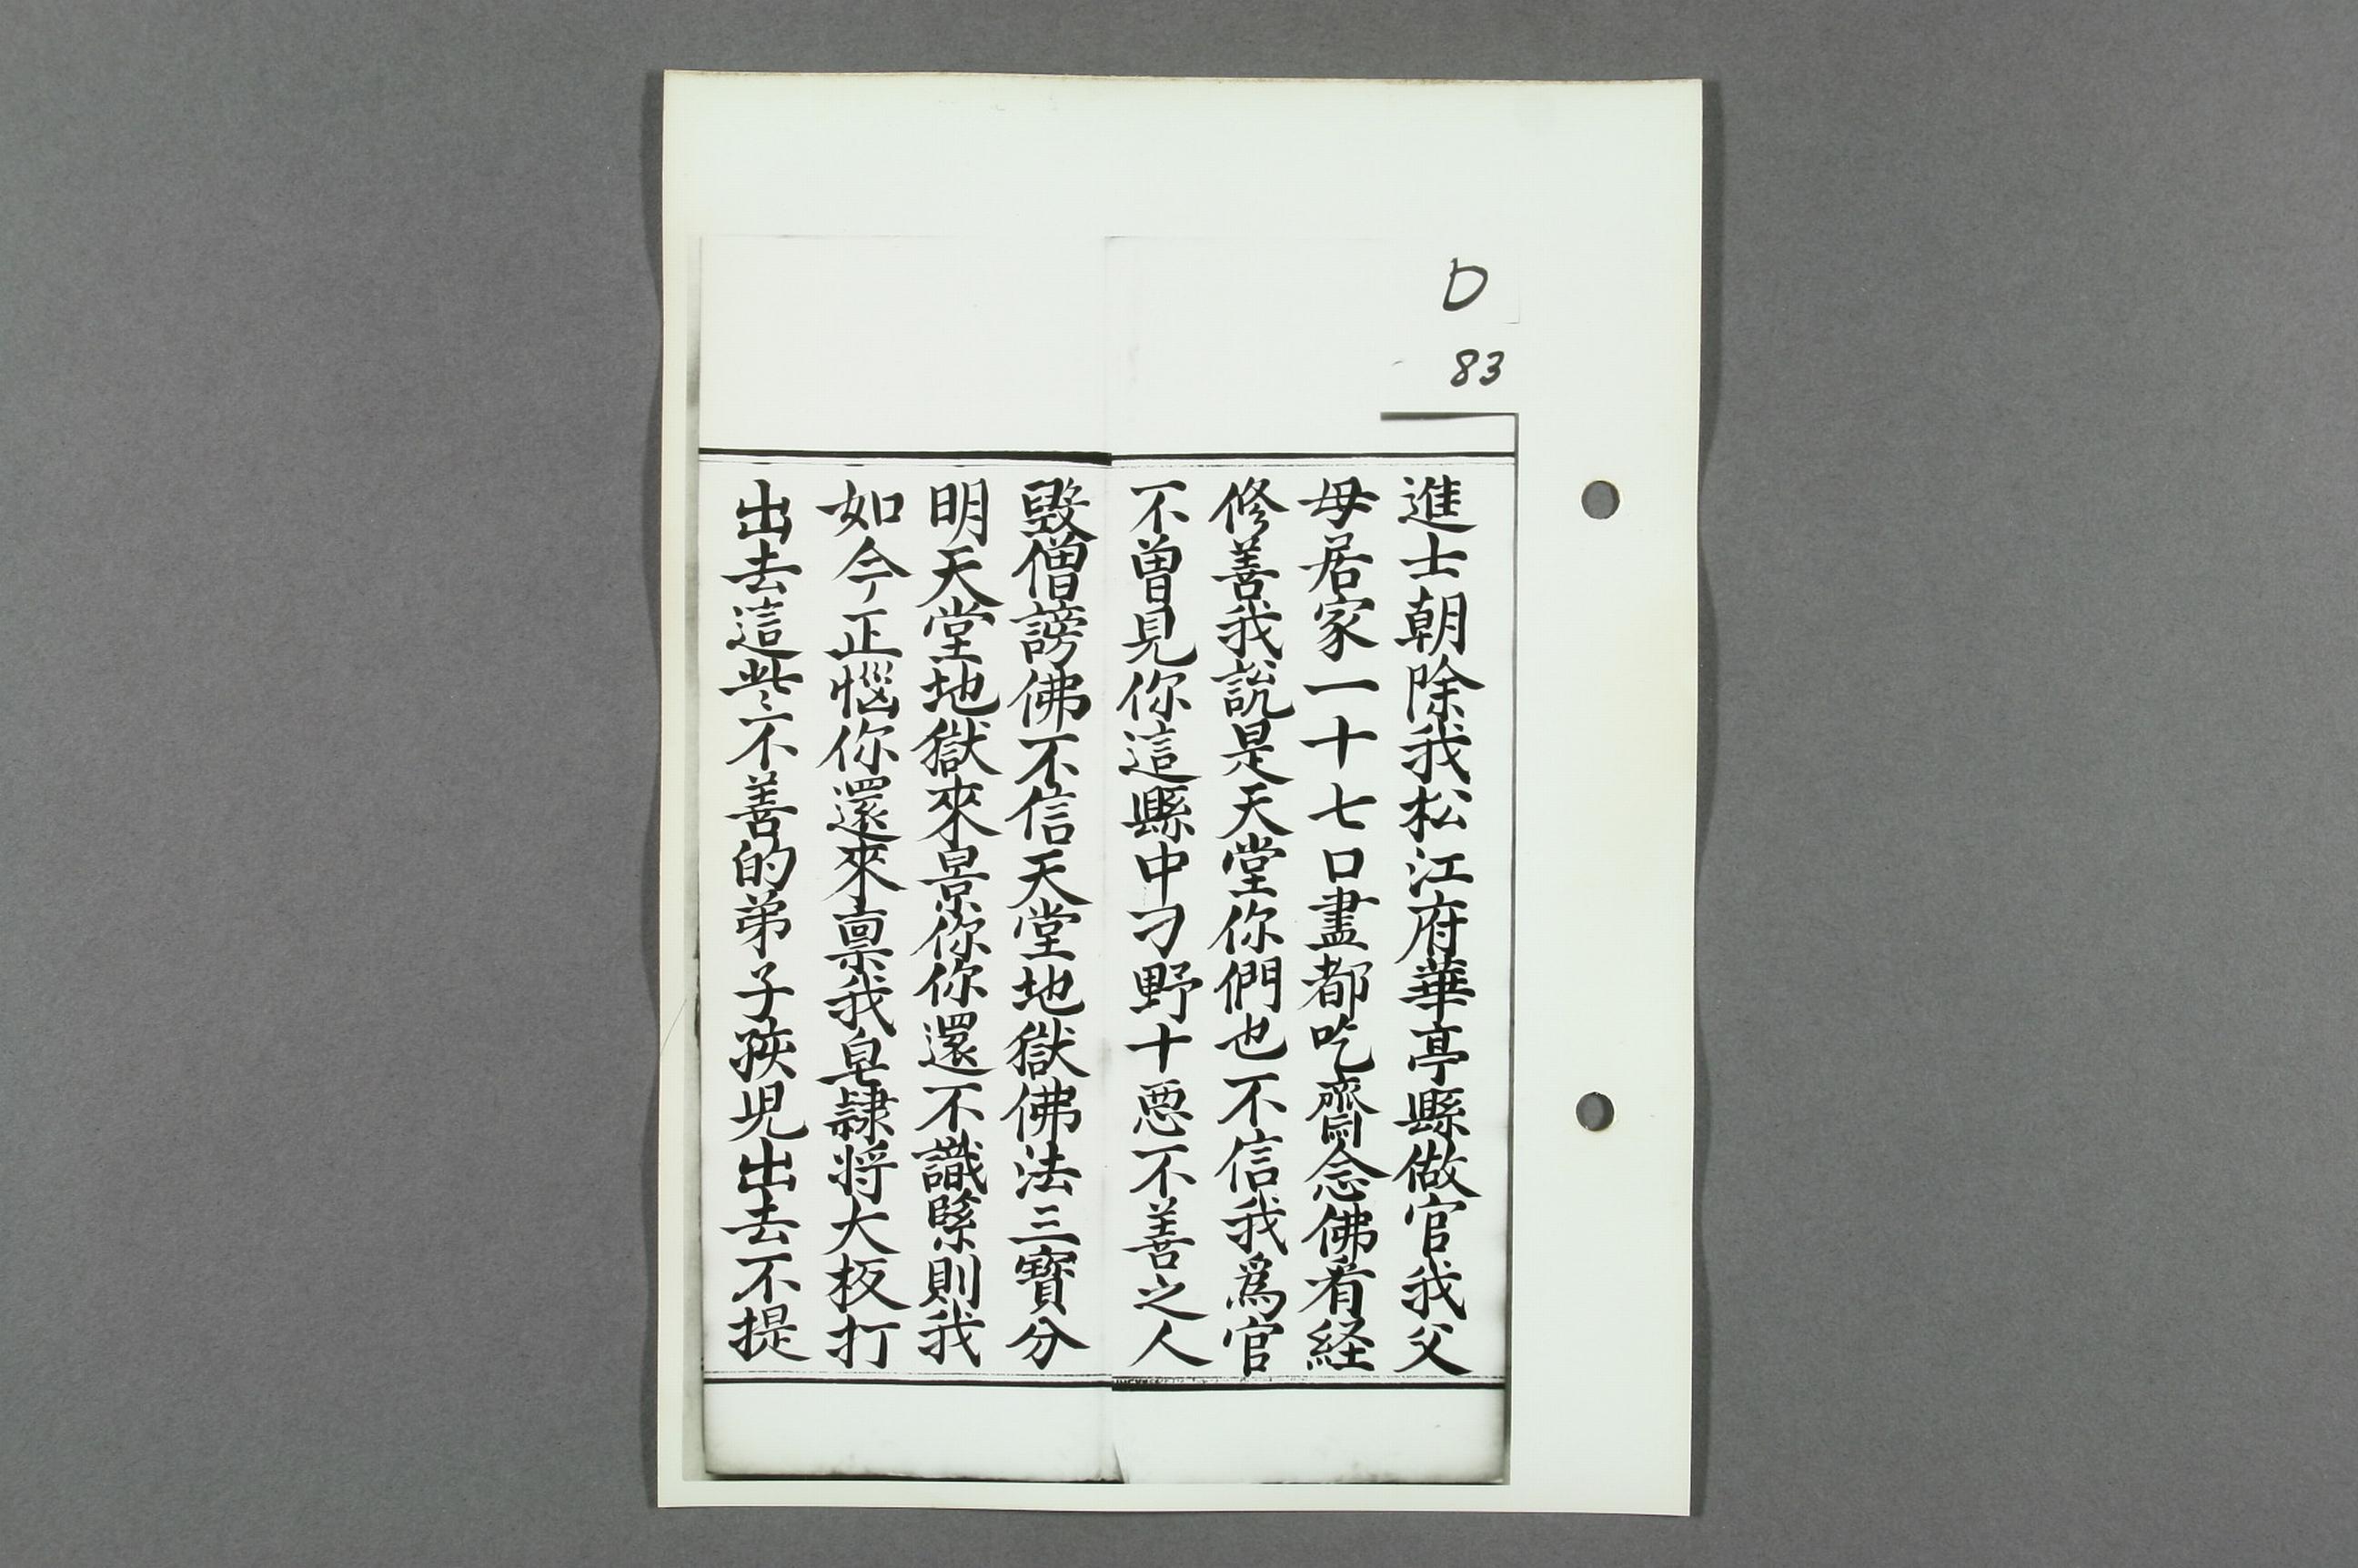 D
83
進士朝除我松江府華亭縣做官我父
母居家一十七口盡都吃齋念佛看経
修善我説是天堂你們也不信我爲官
不曽見你這縣中刁野十惡不善之人
毀僧謗佛不信天堂地獄佛法三寳分
明天堂地獄來景你你還不識緊則我
如今正惱你還來禀我皂隸将大板打
出去這些不善的弟子孩児出去不提